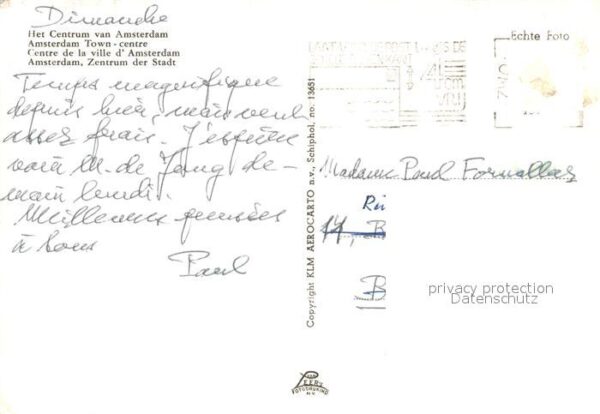 Dimanche
Het Centrum van Amsterdam
Amsterdam Town-centre
Centre de la ville d'Amsterdam
Amsterdam, Zentrum der Stadt
Temps magnifique
depuis hier, mais vent
assez frais. J'espère
voir M. de Jong de-
main lundi.
Meilleures pensées
à tous
Paul
Copyright KLM AEROCARTO n.v., Schiphol, no. 13651
Echte Foto
Madame Paul
17, B
B
privacy protection
Datenschutz